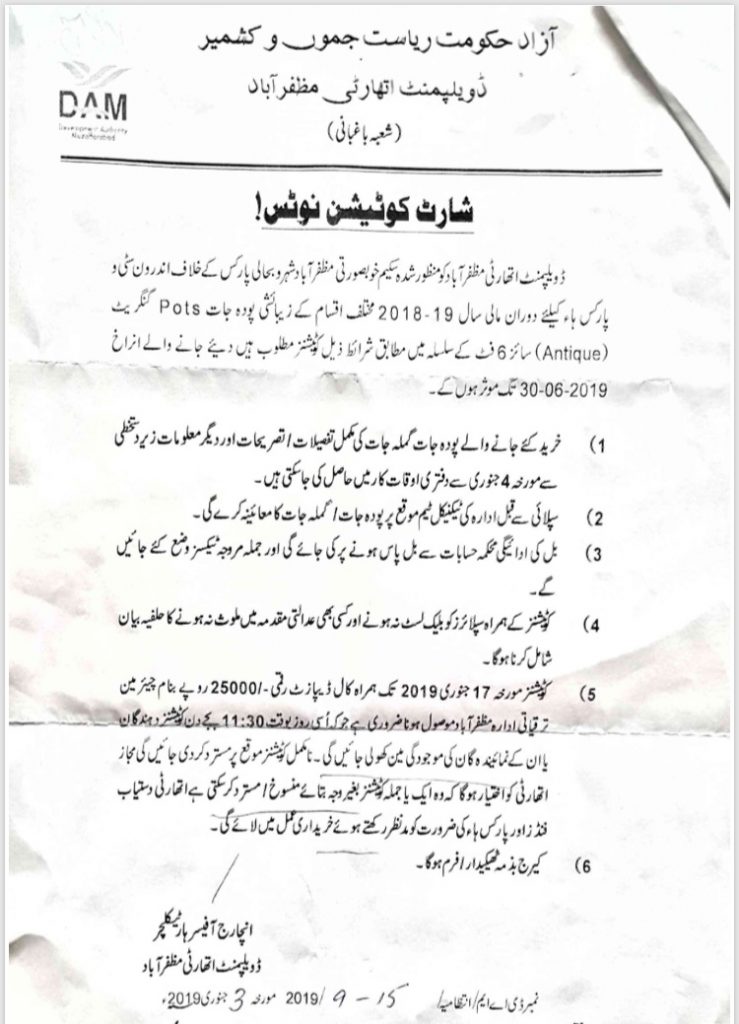 آزاد حکومت ریاست جموں و کشمیر
ڈویلپمنٹ اتھارٹی مظفرآباد
(شعبہ باغبانی)
DAM
Development Authority
Muzaffarabad
شارٹ کوٹیشن نوٹس!
ڈویلپمنٹ اتھارٹی مظفرآباد کو منظور شدہ سکیم خوبصورتی مظفرآباد شہر و بحالی پارکس کے خلاف اندرون سٹی و
پارکس ہاء کیلئے دوران مالی سال 19-2018 مختلف اقسام کے زیبائشی پودہ جات Pots کنگریٹ
(Antique) سائز 6 فٹ کے سلسلہ میں مطابق شرائط ذیل کوٹیشنز مطلوب ہیں دیئے جانے والے انراخ
30-06-2019 تک موثر ہوں گے۔
1) خرید کئے جانے والے پودہ جات گملہ جات کی مکمل تفصیلات / تصریحات اور دیگر معلومات زیر دستخطی
سے مورخہ 4 جنوری سے دفتری اوقات کار میں حاصل کی جاسکتی ہیں۔
2) سپلائی سے قبل ادارہ کی ٹیکنیکل ٹیم موقع پر پودہ جات / گملہ جات کا معائینہ کرے گی۔
3) بل کی ادائیگی محکمہ حسابات سے بل پاس ہونے پر کی جائے گی اور جملہ مروجہ ٹیکسز وضع کئے جائیں
گے۔
4) کوٹیشنز کے ہمراہ سپلائرز کو بلیک لسٹ نہ ہونے اور کسی بھی عدالتی مقدمہ میں ملوث نہ ہونے کا حلفیہ بیان
شامل کرنا ہوگا۔
5) کوٹیشنز مورخہ 17 جنوری 2019 تک ہمراہ کال ڈیپازٹ رقمی -/25000 روپے بنام چیئرمین
ترقیاتی ادارہ مظفرآباد موصول ہونا ضروری ہے جو کہ اُسی روز بوقت 11:30 بجے دن کوٹیشنز دہندگان
یا ان کے نمائیندہ گان کی موجودگی مین کھولی جائیں گی۔ نامکمل کوٹیشنز موقع پر مسترد کر دی جائیں گی مجاز
اتھارٹی کو اختیار ہوگا کہ وہ ایک یا جملہ کوٹیشنز بغیر وجہ بتائے منسوخ / مسترد کر سکتی ہے اتھارٹی دستیاب
فنڈز اور پارکس ہاء کی ضرورت کو مدنظر رکھتے ہوئے خریداری عمل میں لائے گی۔
6) کیرج بذمہ ٹھیکیدار / فرم ہوگا۔
انچارج آفیسر ہارٹیکلچر
ڈویلپمنٹ اتھارٹی مظفرآباد
نمبر ڈی اے ایم / انتظامیہ / 15 - 9 /2019 مورخہ 3 جنوری 2019ء